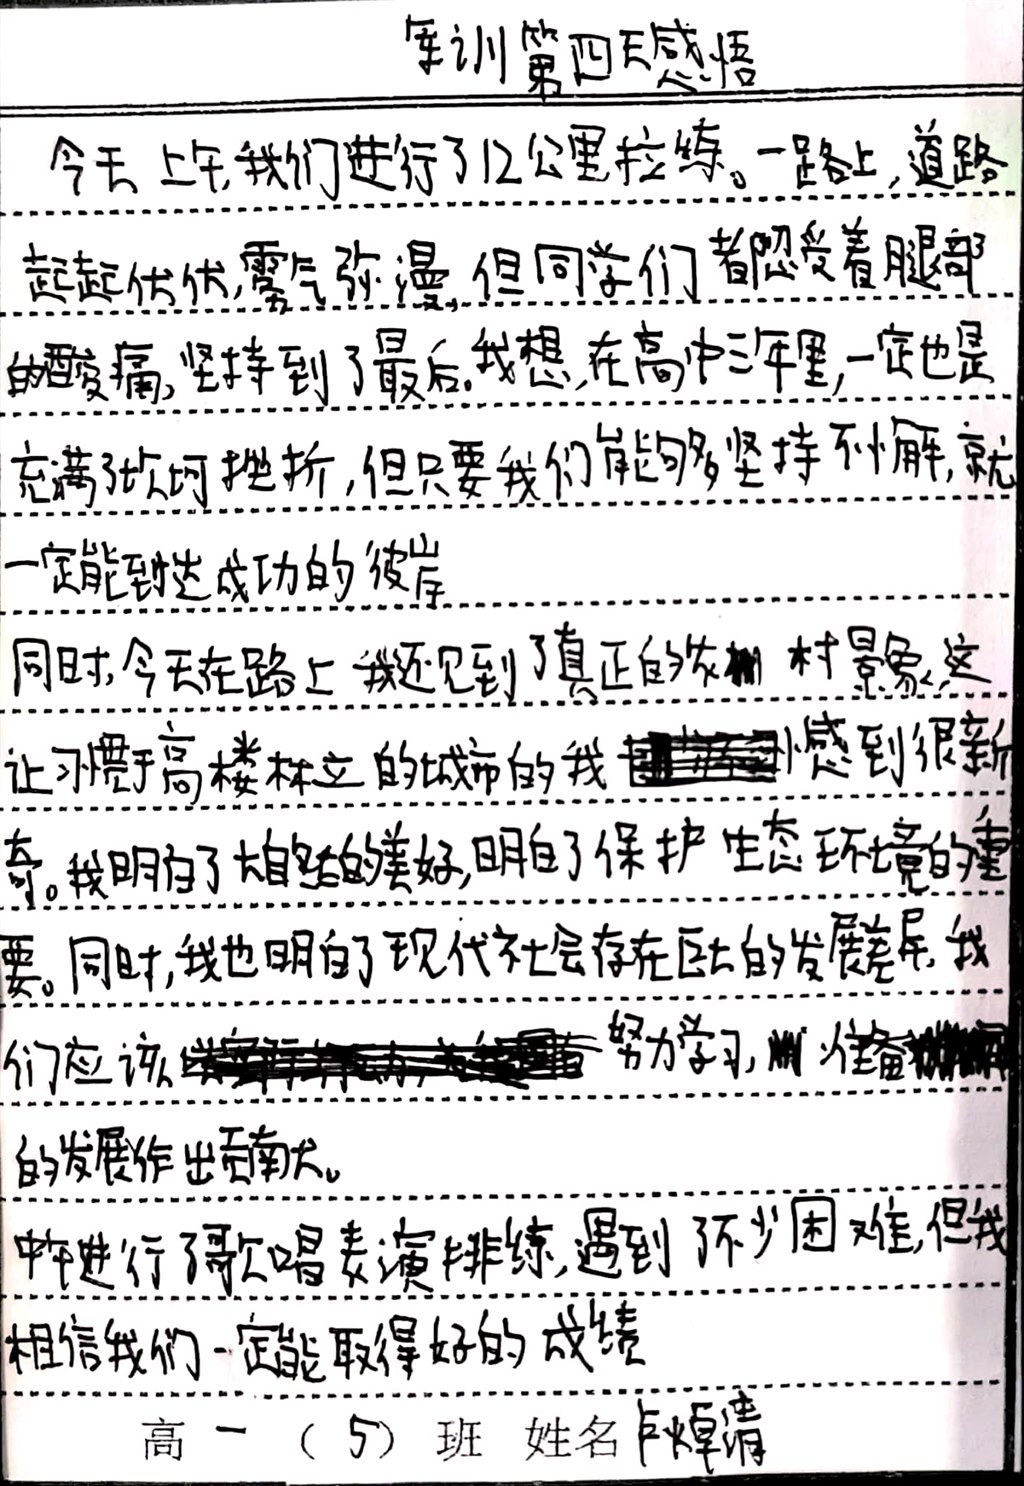 军训第四天感悟
今天上午,我们进行了12公里拉练。一路上,道路
起起伏伏,雾气弥漫,但同学们都忍受着腿部
的酸痛,坚持到了最后。我想,在高中三年里,一定也是
充满了坎坷挫折,但只要我们能够坚持不懈,就
一定能到达成功的彼岸
同时,今天在路上我还见到了真正的农村景象,这
让习惯于高楼林立的城市的我感到很新
奇。我明白了大自然的美好,明白了保护生态环境的重
要。同时,我也明白了现代社会存在巨大的发展差异,我
们应该努力学习,准备
的发展作出贡献。
中午进行了歌唱表演排练,遇到了不少困难,但我
相信我们一定能取得好的成绩
高一(5)班 姓名卢焯清